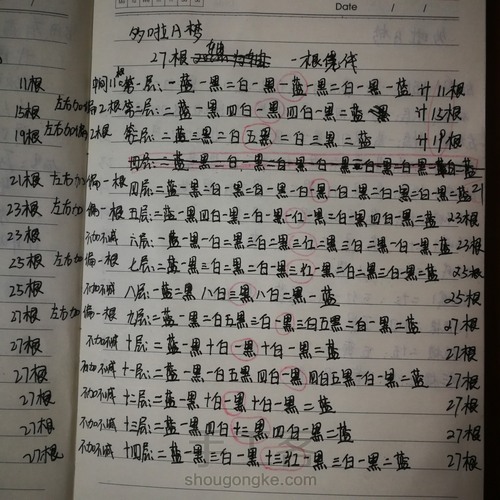 Date / /
哆啦A梦
27根 一根绕线
11根 中间11根 第一层:一蓝一黑二白一黑一蓝一黑二白一黑一蓝 计11根
15根 左右加偏2根 第二层:二蓝一黑四白一黑四白一黑二蓝 计15根
19根 左右加偏2根 第三层:二蓝三黑二白五黑二白三黑二蓝 计19根
21根 左右加偏一根 四层:二蓝一黑二白一黑二白一黑一白一黑一白一黑二白一黑二白一黑二蓝 21
23根 左右加偏一根 五层:二蓝一黑四白一黑二白一黑一红一黑二白一黑四白一黑二蓝 23根
23根 不加不减 六层:一蓝一黑一白三黑三白二黑三红二黑三白三黑一白一黑一蓝 23根
25根 左右加偏一根 七层:二蓝一黑三白三黑二白一黑三红一黑二白三黑三白一黑二蓝 25根
25根 不加不减 八层:一蓝二黑八白三黑八白二黑一蓝 25根
27根 左右加偏一根 九层:二蓝一黑二白五黑三白一黑三白五黑二白一黑二蓝 27根
27根 不加不减 十层:二蓝一黑十白一黑十白一黑二蓝 27根
27根 不加不减 十一层:二蓝一黑一白五黑四白一黑四白五黑一白一黑二蓝 27根
27根 不加不减 十二层:二蓝一黑十白一黑十白一黑二蓝 27根
27根 不加不减 十三层:二蓝一黑四白十三黑四白一黑二蓝 27根
27根 不加不减 十四层:二蓝一黑三白一黑十三红一黑三白一黑二蓝 27根
shougongke.com